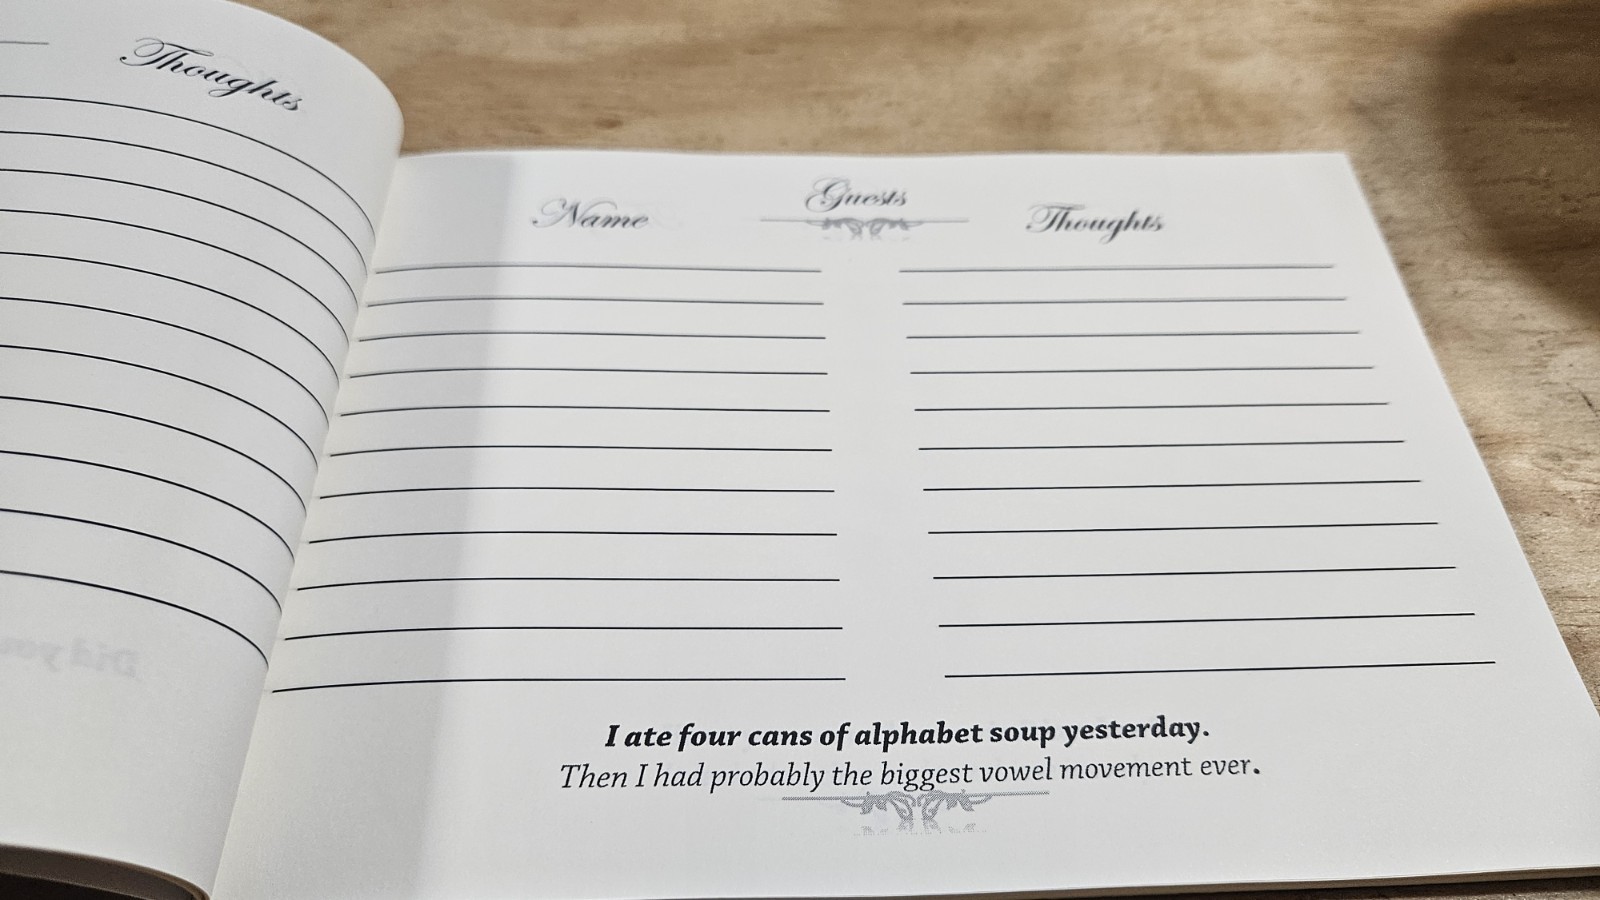 Thoughts
Guests
Name
Thoughts
I ate four cans of alphabet soup yesterday.
Then I had probably the biggest vowel movement ever.